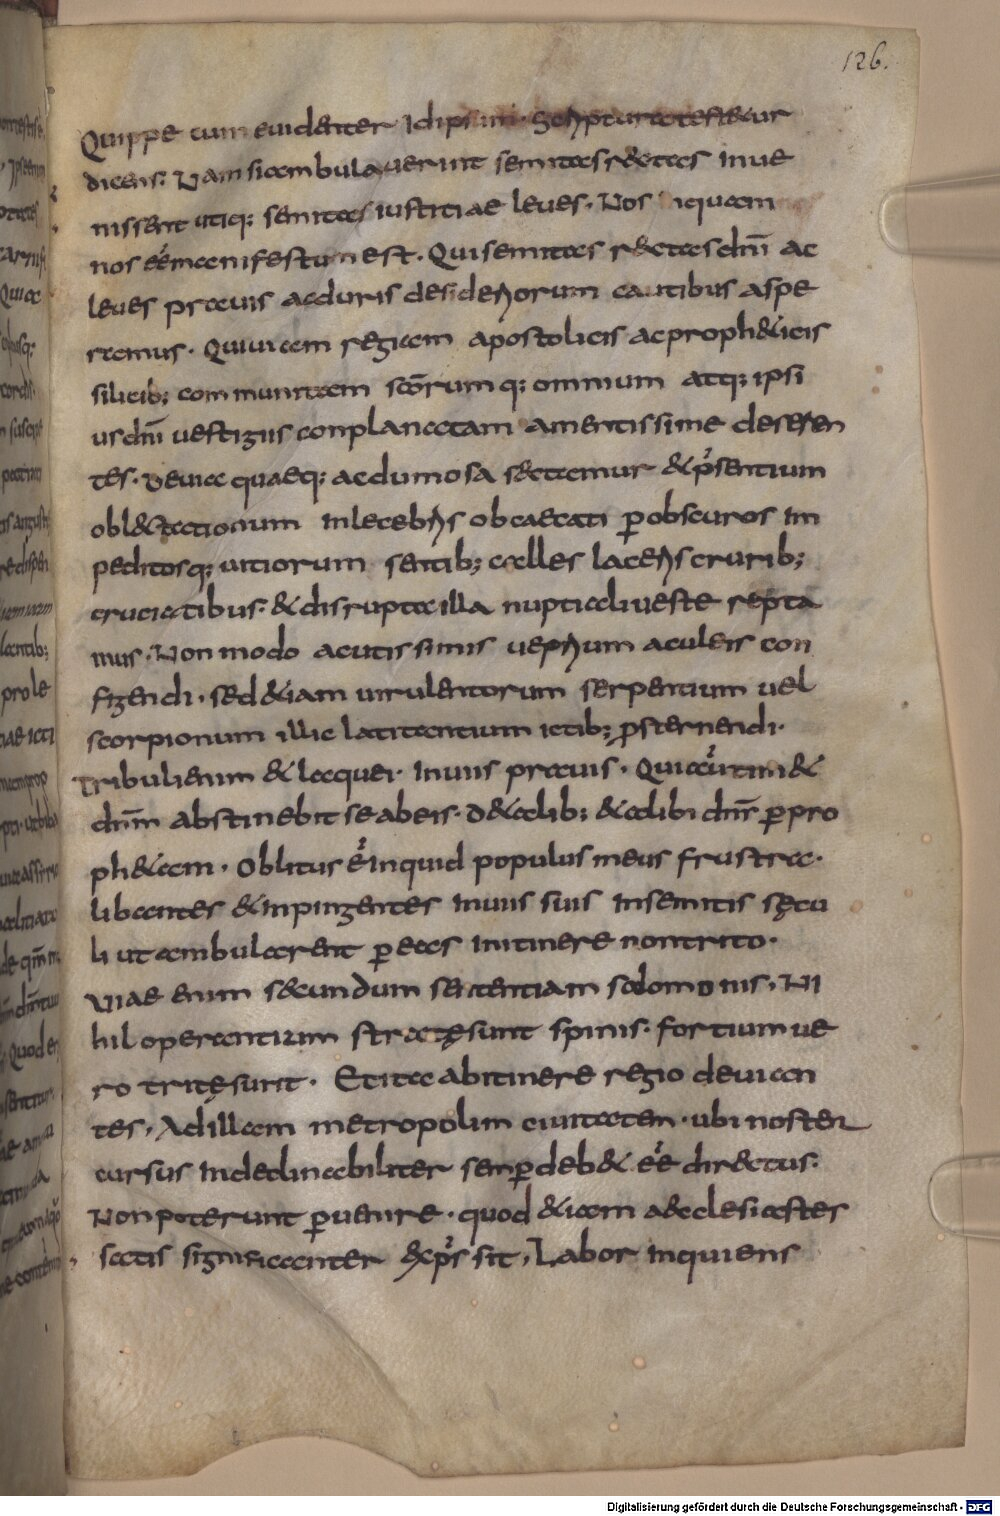 126.
Quippe cum euidenter Idipsum. Scripturatestetur
dicens: Nam siambulauerunt semitasrectas Inue
nissent utiq; semitas iustitiae leues. Nos
nos eē manifestum est. Qui semitas rectas dnī ac
leues prauis acduris desideriorum cautibus aspe
ramus. Quiuiam regiam apostolicis acpropheticis
silicib; communitam scōrum q; omnium atq; ipsi
usdnī uestigiis conplanatam amentissime deseren
tes. Deuia quaeq; acdumosa sectamur &p̄sentium
oblectationum Inlecebris obcaecati ꝑobscuros Im
peditosq; uitiorum sentib; calles laceris crurib;
cruciatibus: &disrupta illa nuptiali ueste repta
mus. Non modo acutissimis ueprium aculeis con
figendi. sed &iam uirulentorum serpentium uel
scorpionum illic latitantium ictib; ꝓsternendi.
Tribuli enim & laquei. Inuiis prauis.
dnm̄ abstinebit seabeis. D& alib; & alibi dnr̄ ꝑpro
ph&am. Oblitus ē Inquid populus meus frustra.
libantes &Inpingentes Inuiis suis Insemitis sęcu
li ut ambularent ꝑ eas Initinere nontrito.
Viae enim secundum sententiam solomonis. Ni
hil operantium stratęsunt spinis. fortium ue
ro tritęsunt. Etita abitinere regio deuian
tes. Adillam metropolim ciuitatem. ubi noster
cursus Indeclinabiliter semꝑ deb& eē directus:
Non poterunt ꝑuenire. quod &iam aecclesiastes
satis significanter exp̄s sit. Labor Inquiens
Digitalisierung gefördert durch die Deutsche Forschungsgemeinschaft - DFG